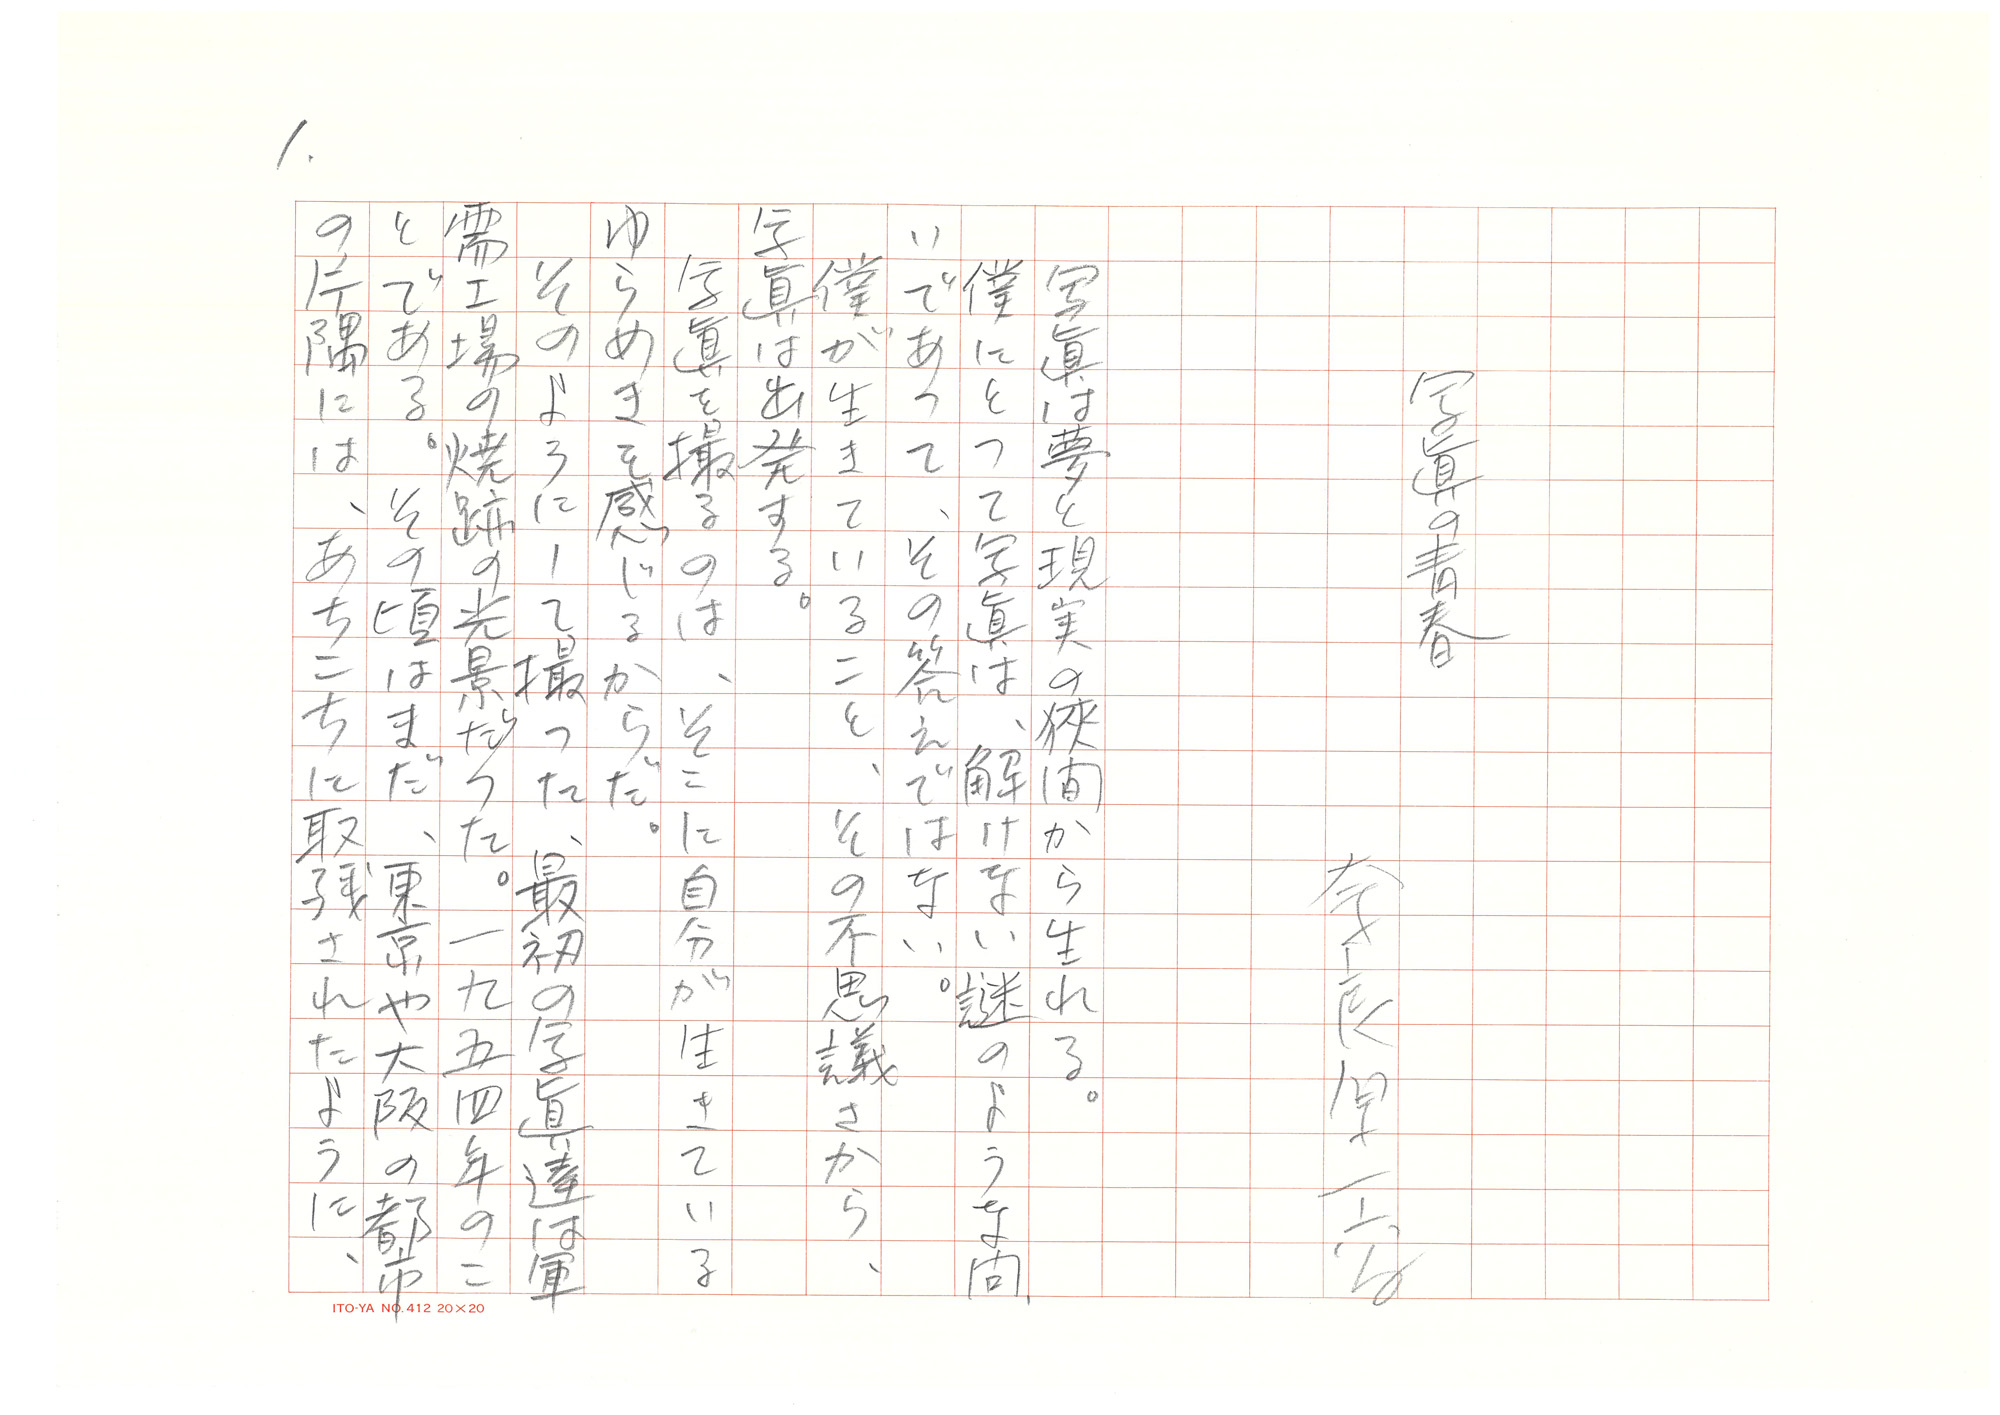 写眞の青春
奈良原一高
写眞は夢と現実の狹間から生れる。
僕にとって写眞は、解けない謎のような問
いであって、その答えではない。
僕が生きていること、その不思議さから、
写眞は出発する。
写眞を撮るのは、そこに自分が生きている
ゆらめきを感じるからだ。
そのようにして撮った、最初の写眞達は軍
需工場の焼跡の光景だった。一九五四年のこ
とである。その頃はまだ、東京や大阪の都市
の片隅には、あちこちに取残されたように、
1.
ITO-YA NO.412 20×20